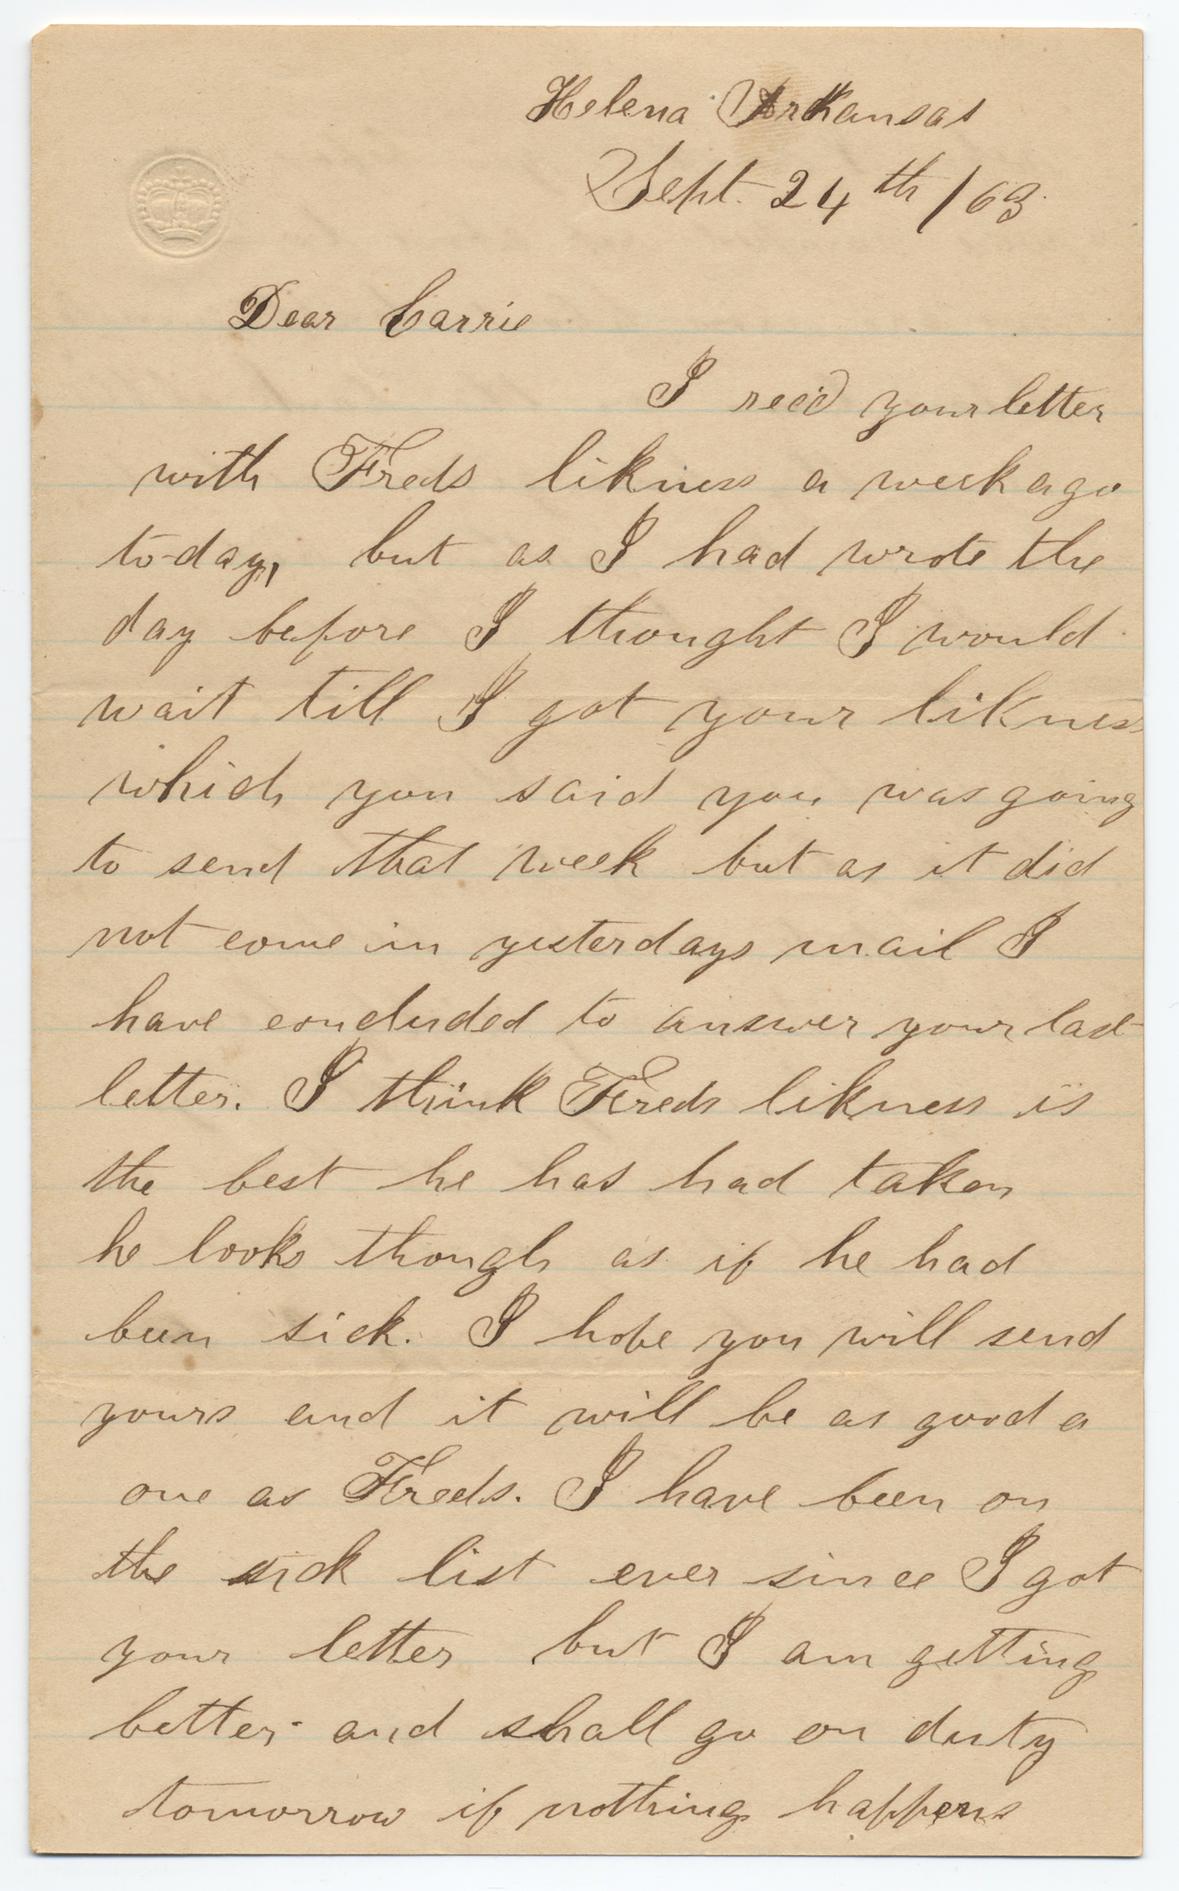 Helena Arkansas
Sept. 24th /63.
Dear Carrie
I recd your letter
with Freds likness a week ago
to-day, but as I had wrote the
day before I thought I would
wait till I got your likness
which you said you was going
to send that week but as it did
not come in yesterdays mail I
have concluded to answer your last
letter. I think Freds likness is
the best he has had taken
he looks though as if he had
been sick. I hope you will send
yours and it will be as good a
one as Freds. I have been on
the sick list ever since I got
your letter but I am getting
better and shall go on duty
tomorrow if nothing happens